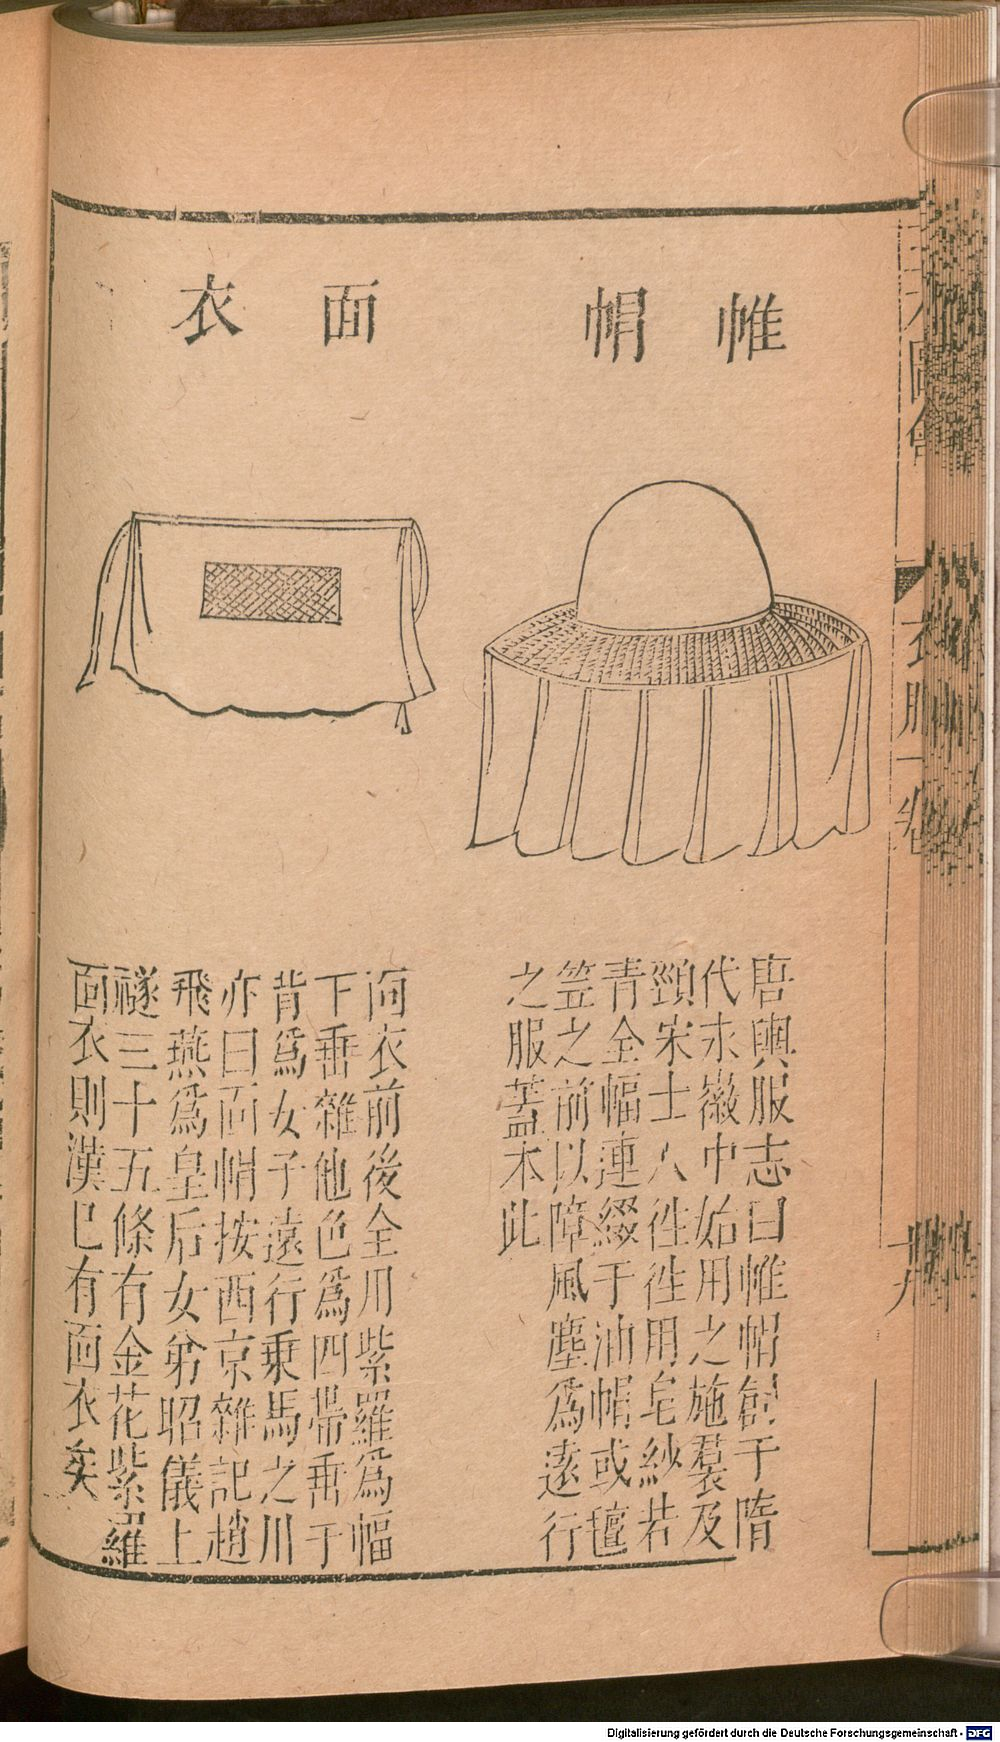 帷帽
唐輿服志曰帷帽創于隋
代永徽中始用之施羣及
頸宋士人徃徃用皂紗若
青全幅連綴于油帽或氊
笠之前以障風塵爲遠行
之服蓋本此
面衣
面衣前後全用紫羅爲幅
下垂雜他色爲四帶垂于
背爲女子遠行乗馬之用
亦曰面帽按西京雜記趙
飛燕爲皇后女弟昭儀上
襚三十五條有金花紫羅
面衣則漢已有面衣矣
衣服一卷
十九
Digitalisierung gefördert durch die Deutsche Forschungsgemeinschaft - DFG